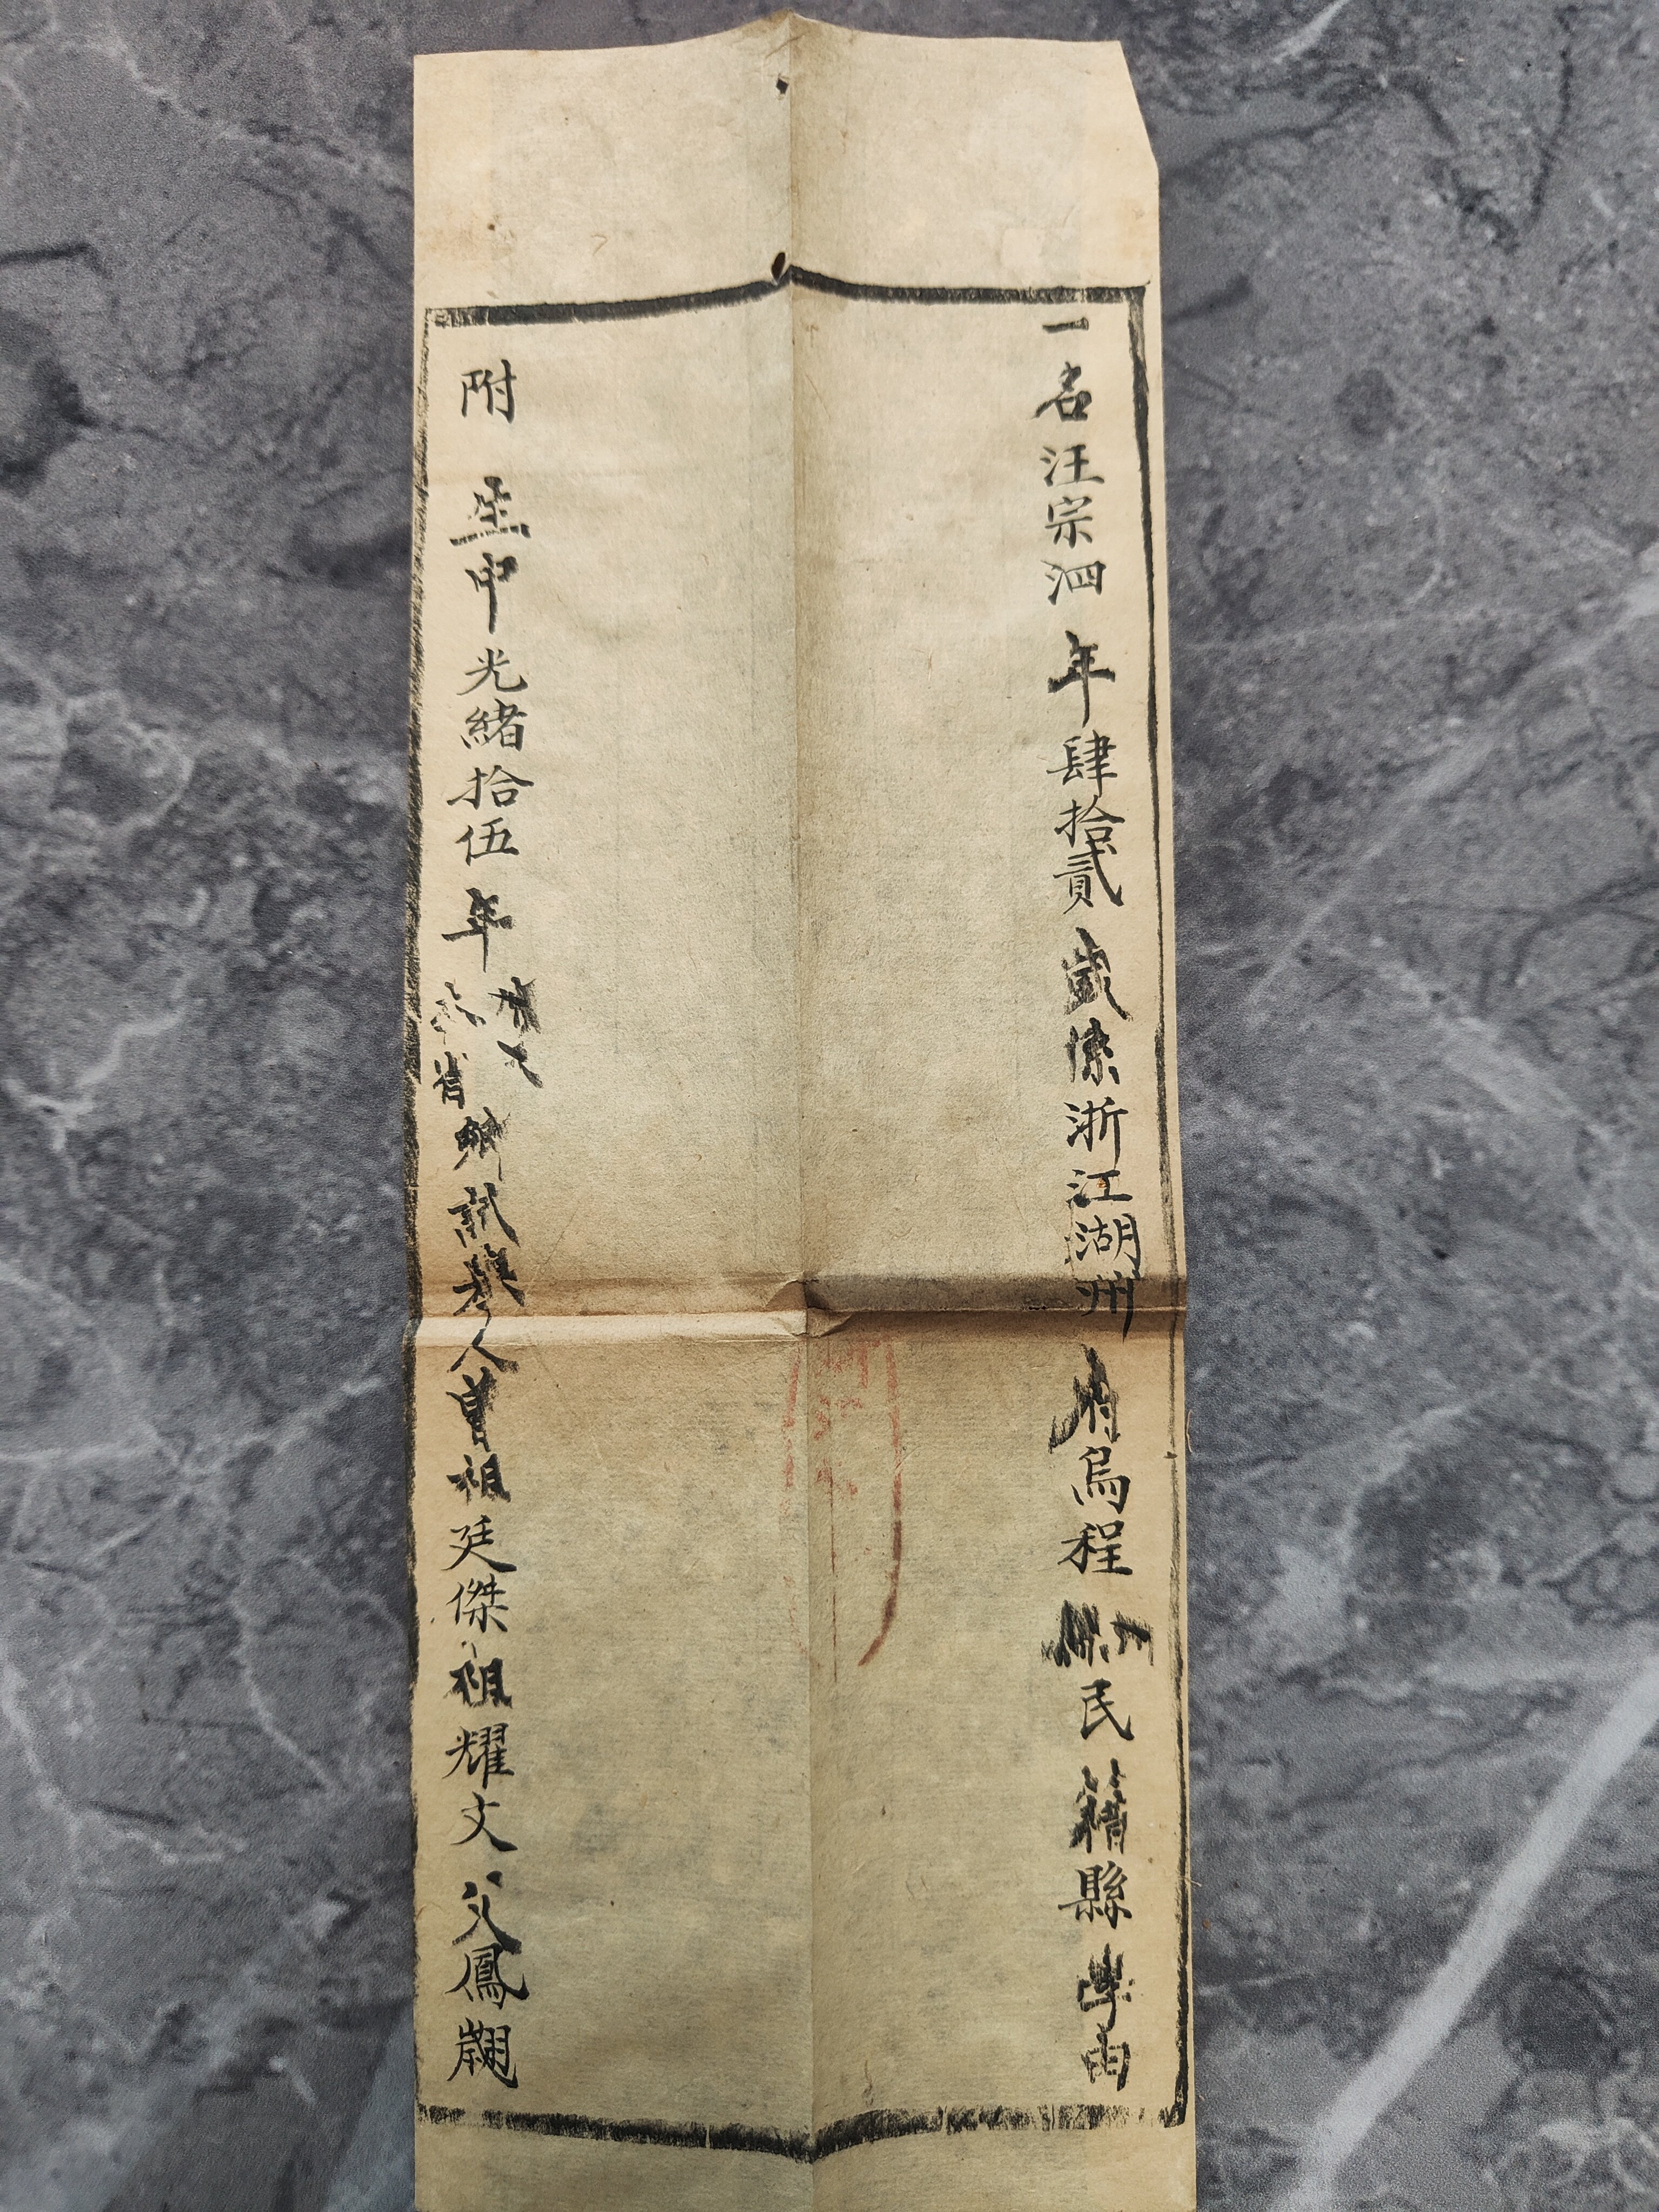 一名汪宗泗年肆拾貳歲係浙江湖州府烏程縣民籍縣學由
附生中光緒拾伍年
本省鄉試舉人曾祖廷傑祖耀文父鳳翽